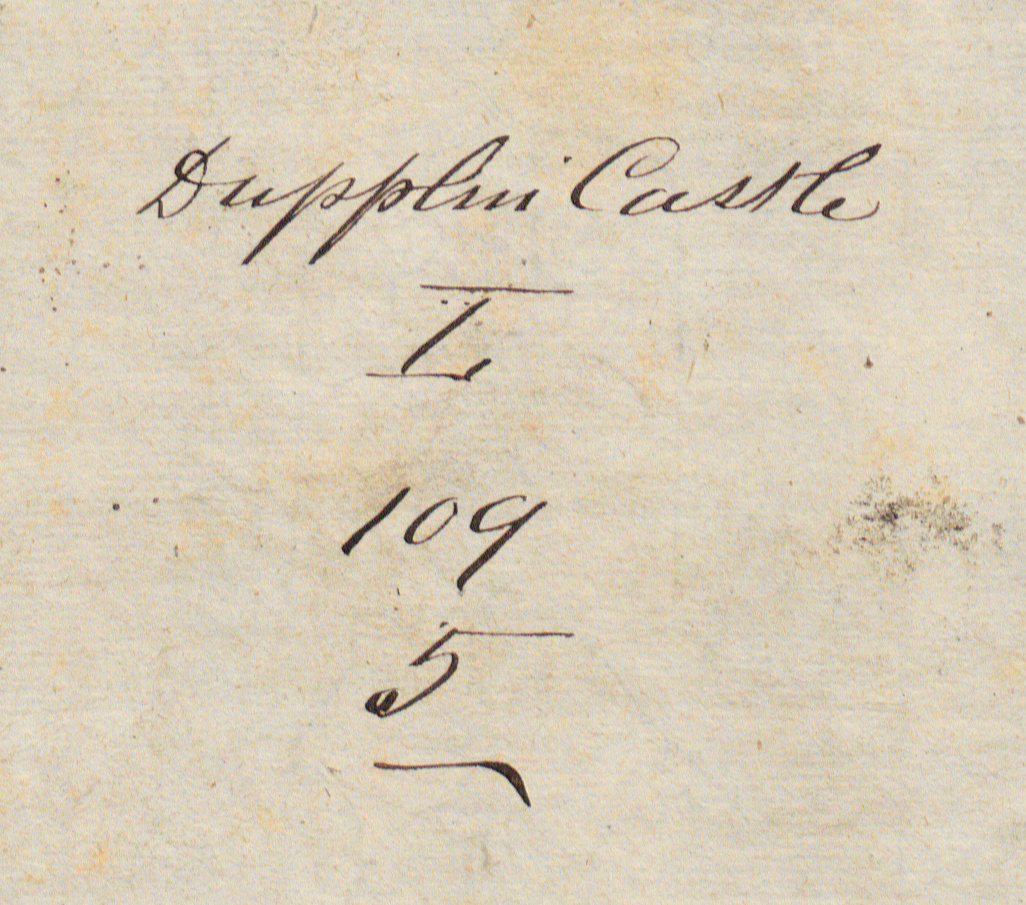 Dupplin Castle
L
109
5